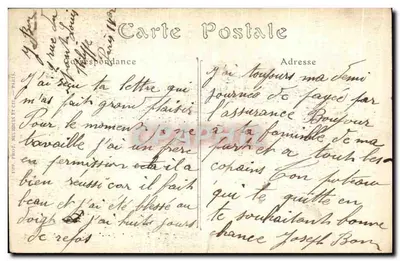 Carte Postale
Correspondance
Adresse
J'ai reçu ta lettre qui
m'as fait grand plaisir
Pour le moment je
travaille j'ai un frère
en permission il a
bien reussi car il fait
beau et j'ai été blessé au
doigt j'ai huit jours
de repos
j'ai toujours ma demi
journée de payée par
l'assurance Bonjour
a la famille de ma
part et a tout les
copains Ton poteau
qui te quitte en
te souhaitant bonne
chance Joseph Bon